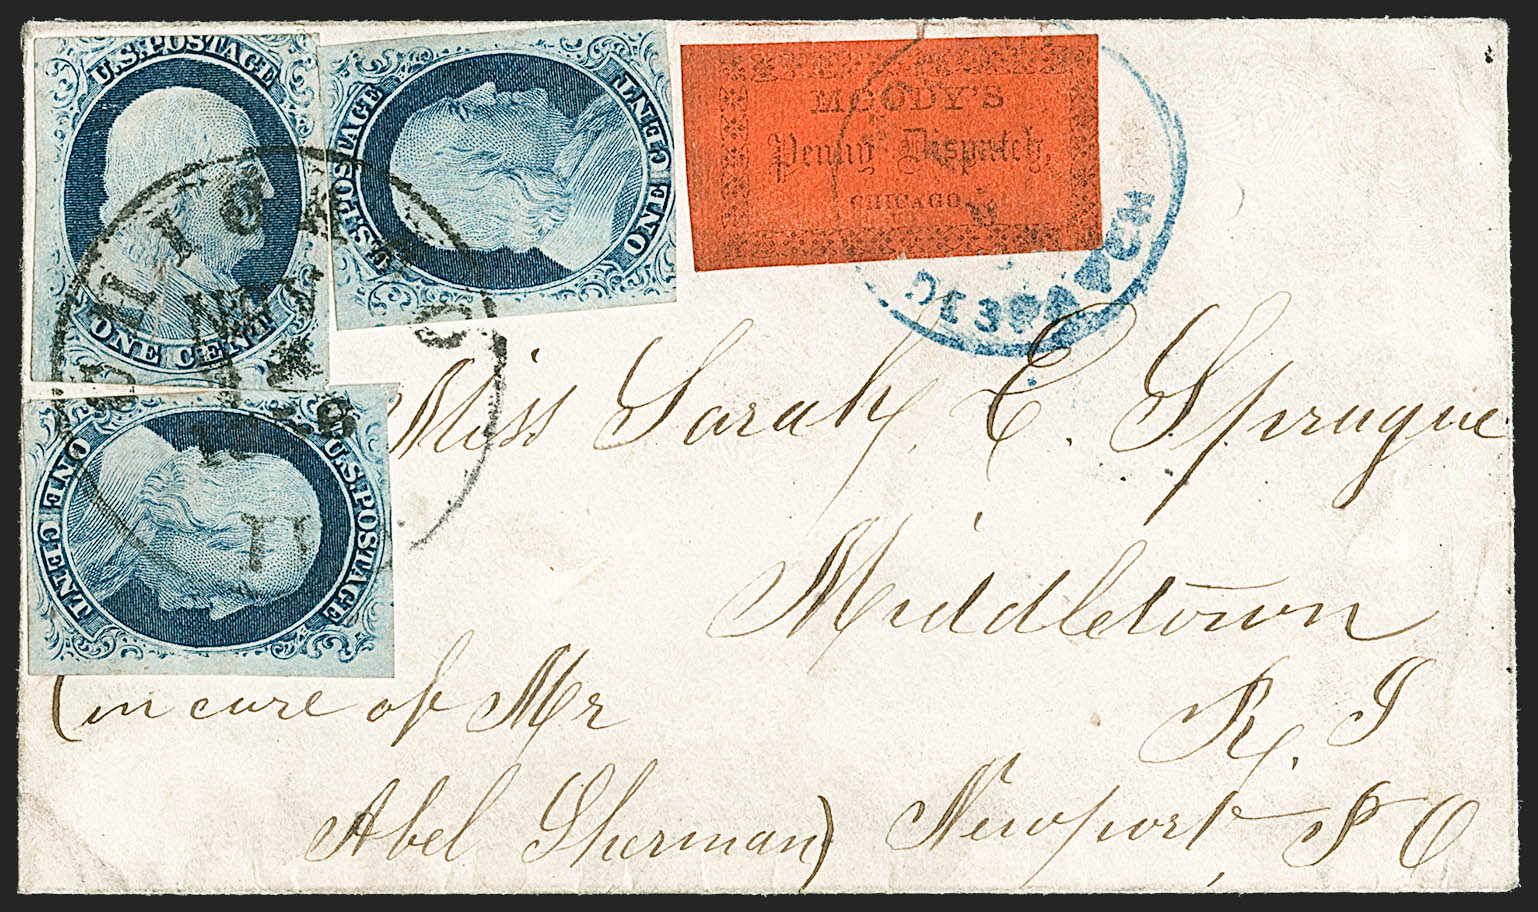 U.S. POSTAGE
ONE CENT
U.S. POSTAGE
ONE CENT
U.S. POSTAGE
ONE CENT
MOODY'S
Penny Dispatch,
CHICAGO.
Miss Sarah E. Sprague
Middletown
R. I
(in care of Mr
Abel Sherman) Newport, P O